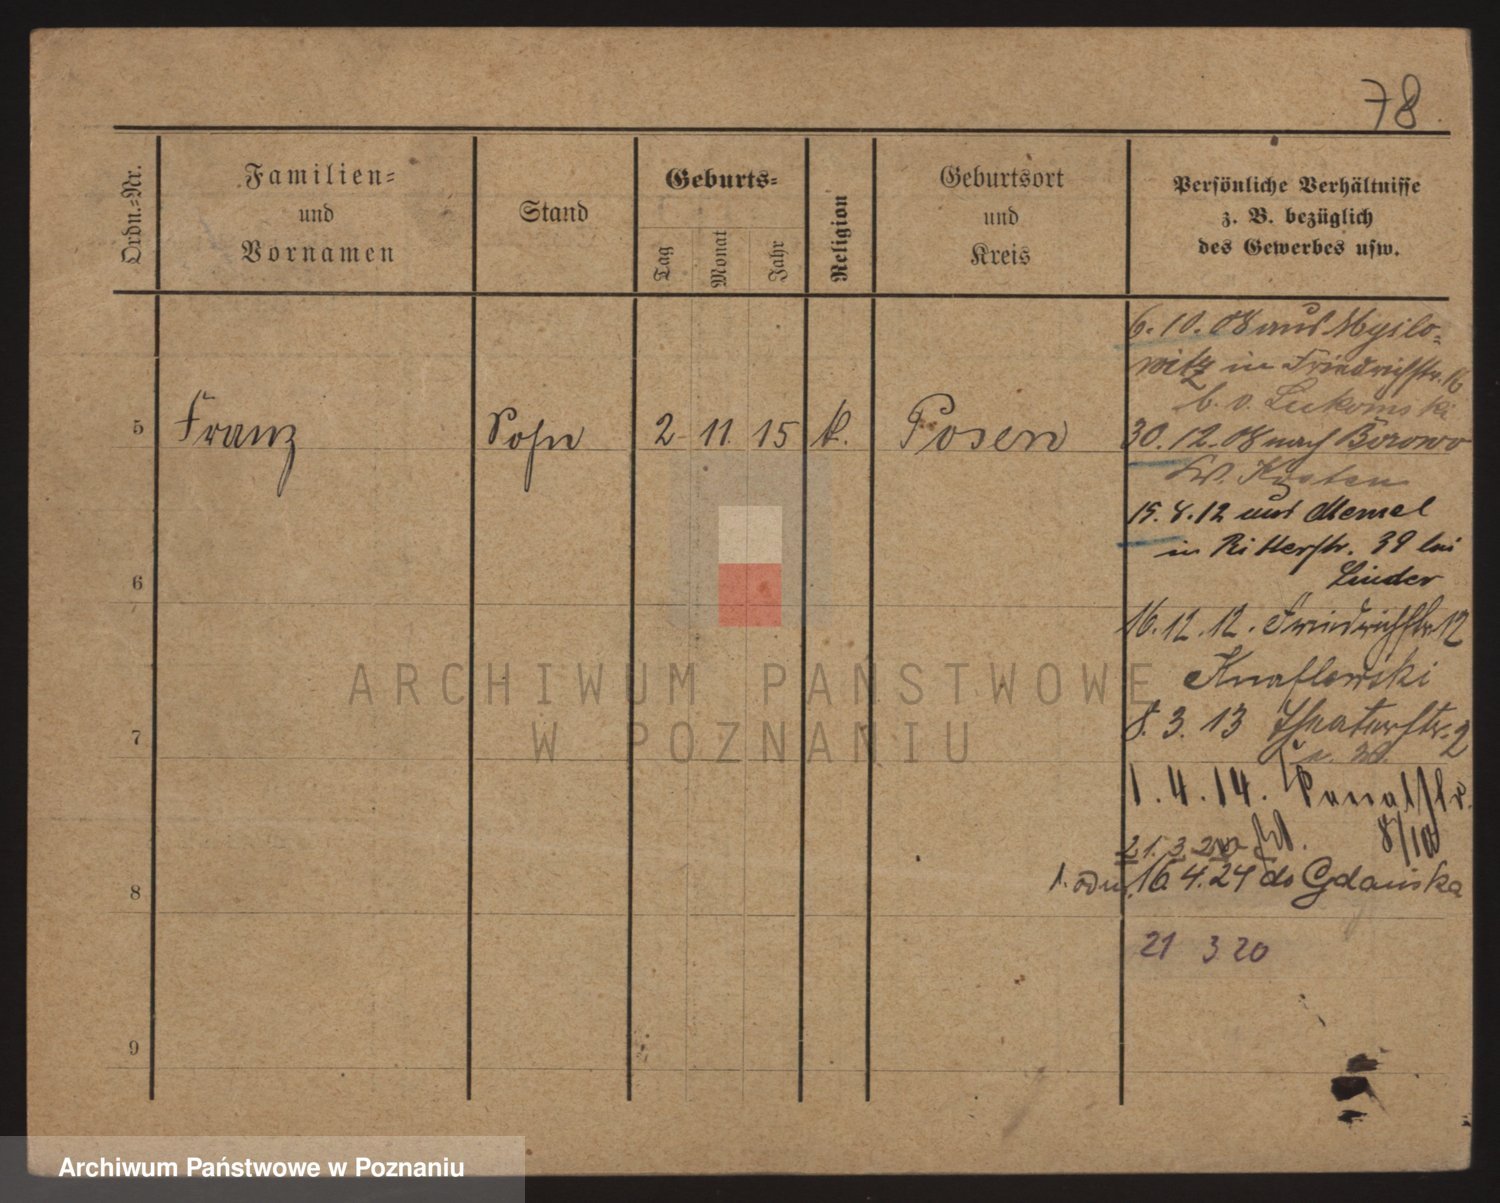 78
Ordn.-Nr.
Familien-
und
Vornamen
Stand
Geburts-
Tag
Monat
Jahr
Religion
Geburtsort
und
Kreis
Persönliche Verhältnisse
z. B. bezüglich
des Gewerbes usw.
6. 10. 08 aus Myslo-
witz in Friedrichstr. 16
b. v. Lukomski
5 Franz Sohn 2 11. 15 k. Posen
30. 12. 08 nach Borowo
Kr. Kosten
15. 8. 12 aus Memel
in Ritterstr. 39 bei
Linder
6
16. 12. 12. Friedrichstr 12
Knaflewski
8. 3. 13 Theaterstr. 2
7
1. 4. 14. Kanalstr.
8/10
21. 3. 20
16 4. 24 do Gdańska
8
21 3 20
9
ARCHIWUM PAŃSTWOWE
W POZNANIU
Archiwum Państwowe w Poznaniu